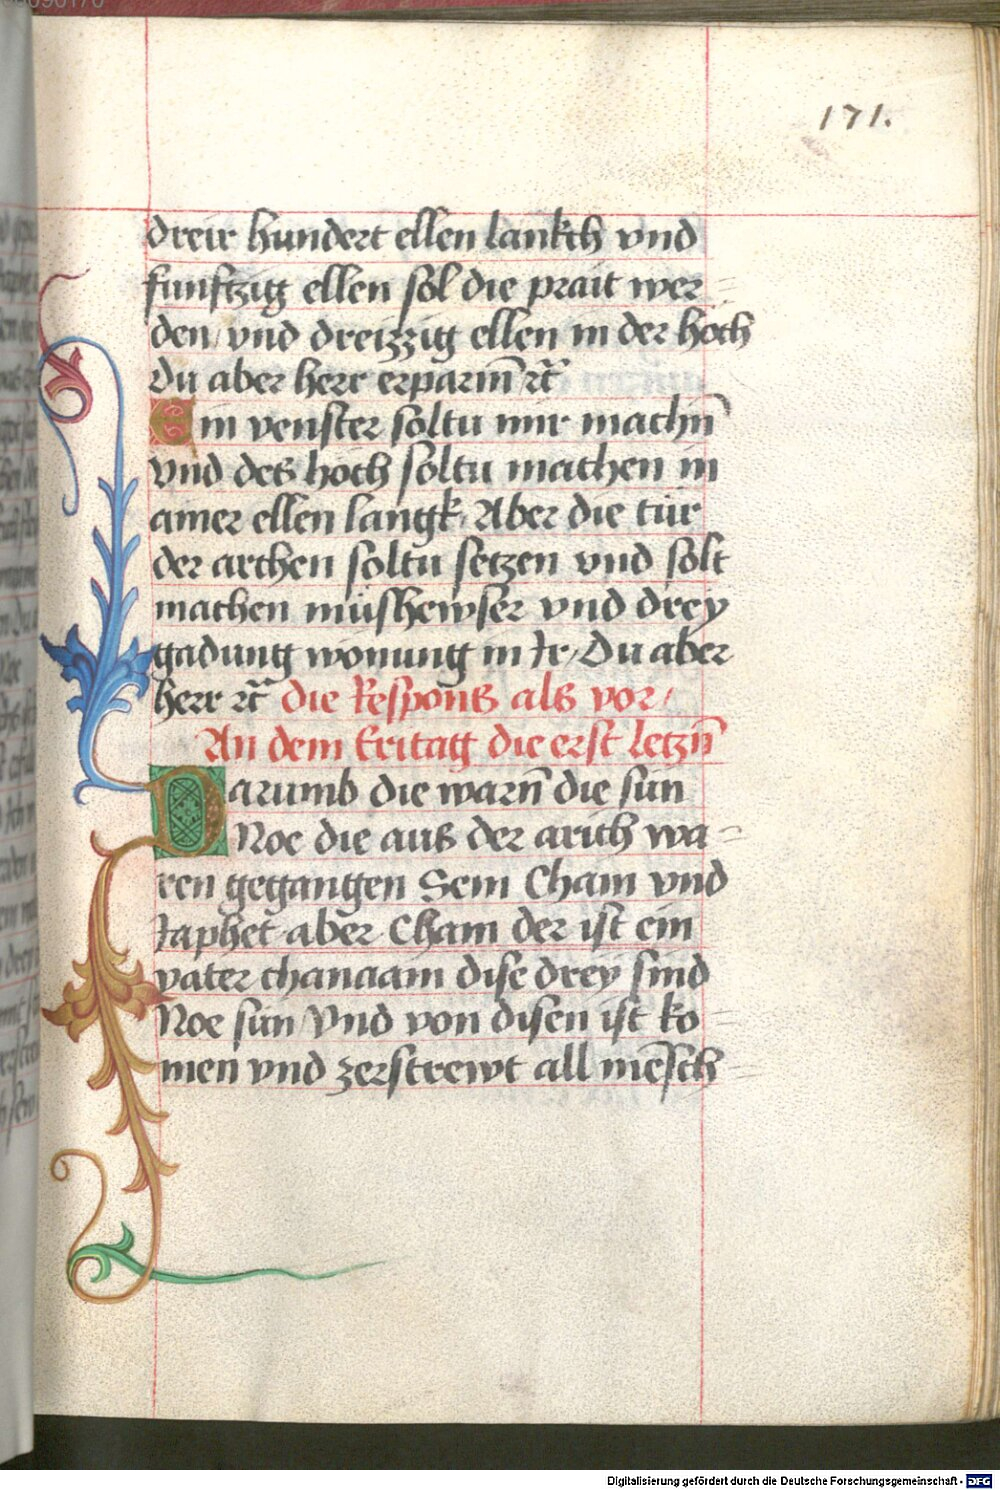 171.
dreir hundert ellen lankch vnd
funftzig ellen sol die prait wer=
den / vnd dreizzig ellen in der hoch
Du aber herr erparm̄ rc̄
Ein venster soltu mir machn̄
vnd des hoch soltu machen in
ainer ellen langk / Aber die tür
der archen soltu setzen vnd solt
machen müshewser vnd drey
gadung wonung in Ir / Du aber
herr rc̄ die Respons als vor /
An dem Eritag die erst Letzn̄
Darumb die warn̄ die sun
Noe die aus der arich wa=
ren gegangen Sem Cham vnd
Japhet aber Cham der ist ein
vater chanaam dise drey sind
Noe sun / Vnd von disen ist ko=
men vnd zerstrewt all mēsch=
Digitalisierung gefördert durch die Deutsche Forschungsgemeinschaft - DFG